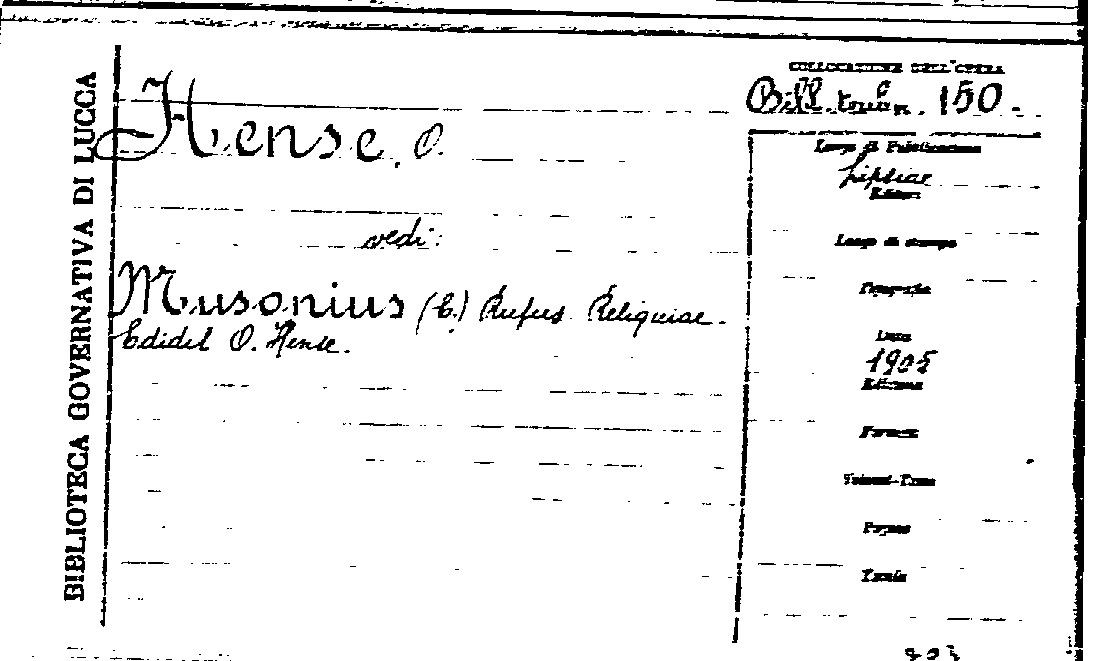 BIBLIOTECA GOVERNATIVA DI LUCCA
Hense, O.
vedi:
Musonius (C.) Rufus Reliquiae.
Edidit O. Hense.
COLLOCAZIONE DELL'OPERA
150.
Luogo di Pubblicazione
Lipsiae
Editore
Luogo di stampa
Tipografia
Data
1905
Edizione
Formato
Volumi-Tomo
Pagine
Tavole